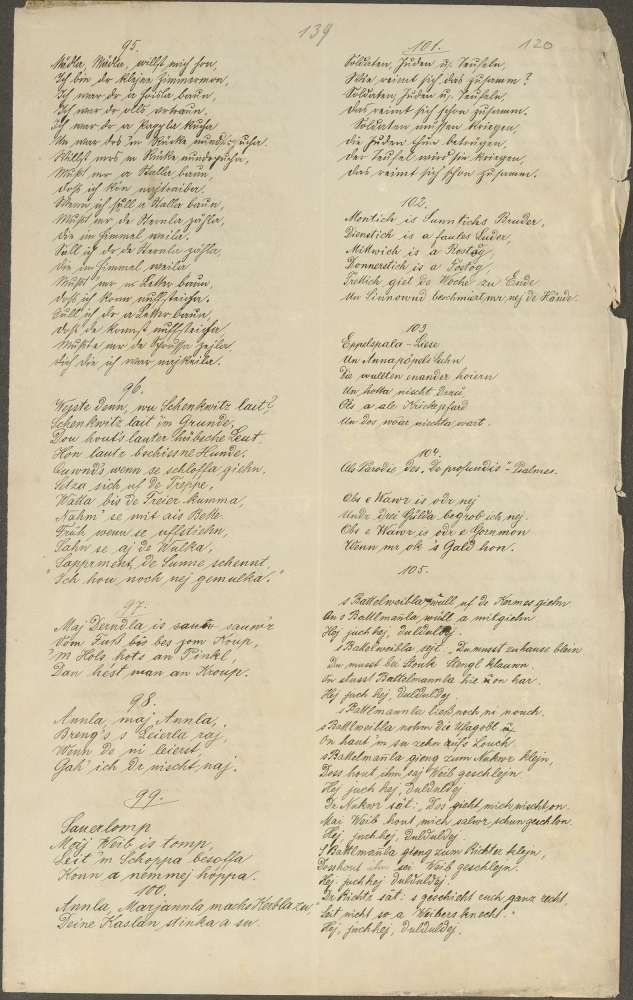 139
120
95.
Mädla, Mädla, willst mich hon,
Ich bin dr klejne Zimmermon,
Ich war dr a Haisla baun,
Ich war dr
Ich war dr a
Willst mrs
Mußt mr a Stalla baun,
Doß ich kon
Wenn ich soll a Stalla baun,
Mußt mr de Sternla zähla,
Die im Himmel weila.
Sull ich dr de Sternla zähla,
Die im Himmel weila
Mußt mr a Letter baun,
Doß ich konn nuffsteicha.
Sull ich dr a Letter baun,
Doß de konnst nuffsteicha
Mußte mr de
96.
Wejste denn, wu Schenkwitz lait?
Schenkwitz lait im Grunde,
Dou hout's lauter hübsche Leut,
Hon laute beschissne Hunde.
Owwnds wenn se schloffa giehn,
Setza sich uf de Treppe,
Watta bis de Freier kumma,
Nahm' se mit ais Bette.
Früh wenn se uffstiehn,
Sahn se aj de Wulka,
"Sapprment, de Sunne schennt,
Ich hou noch nej gemulka."
97.
Maj Derndla is sauwr
Vom Fuß bis bes zom Koup,
'M Hols hots an Pinkl,
Dan hést man an Kroup.
98.
Annla, maj Annla,
Breng's s Leierla raj,
Wenn do ni leierst
Gah' ich dr nischt naj.
99.
Sauerlomp
Moij Weib is tomp,
Leit 'm Schoppa besoffa
Konn a nemmej hoppa.
100.
Annla, Marjannla machs Korbla zu
Deine Kaslan stinka a su.
101.
Soldaten, Juden u. Teufeln,
Wie reimt sich das zusamm?
Soldaten, Juden u. Teufeln,
Das reimt sich schon zusamm.
Soldaten müssen kriegen,
Die Juden thun betrügen,
Der Teufel wird sie kriegen,
Das reimt sich schon zusamm.
102.
Montich is Sunntichs Bruder,
Dienstich is a faules Luder,
Mittwich is a Rostag,
Donnerstich is a Fostog,
Freitich giet de Woche zu Ende
Un Sunnownd beschmiert mr nej de Hände.
103
Eppelspala-Liese
Un Annapopels Suhn
Die wullten enander heiern
Un hotta nischt drzu
Ols a ale Krickepfard
Un dos woar nischta wart.
104.
Als Parodie des "De profundis"-Psalmes.
Obs e Wawr is odr nej
Undr drei Gulda begrob ich nej.
Obs e Wawr is odr e Gornmon
Wenn mr ok 's Gald hon.
105.
s Battelweibla wull uf de Kermes giehn
On s Battlmannla wull a mitgiehn
Hej juch hej, dulduldej.
s Battelweibla sejt: "Du musst zu hause blein
Du musst bei Stonk Stengl klauwn.
On stusst Battelmannla hie u on har.
Hej juch hej, dulduldej.
s Battlmannla ließ noch ni nouch.
s Battlweibla nohm die Ufagobl
On haut 'm su zehn aufs Louch.
s Battelmanla gieng zum Nukwr klejn,
Doss hout ihm sej Weib geschlejn
Hej juch hej, duldulej.
Dr Nukwr sät: Dos gieht mich nischt on.
Mai Weib hout mich salwr schun geschlon.
Hej juch hej, duldulej.
s Battlmanla gieng zum Richtr klejn,
Doss hout ihm sei Weib geschlejn.
Hej juch hej duldulej.
Dr Richtr sät: s geschieht euch ganz recht.
Seit nicht so a Weibersknecht."
Hej, juch hej, duldulej.